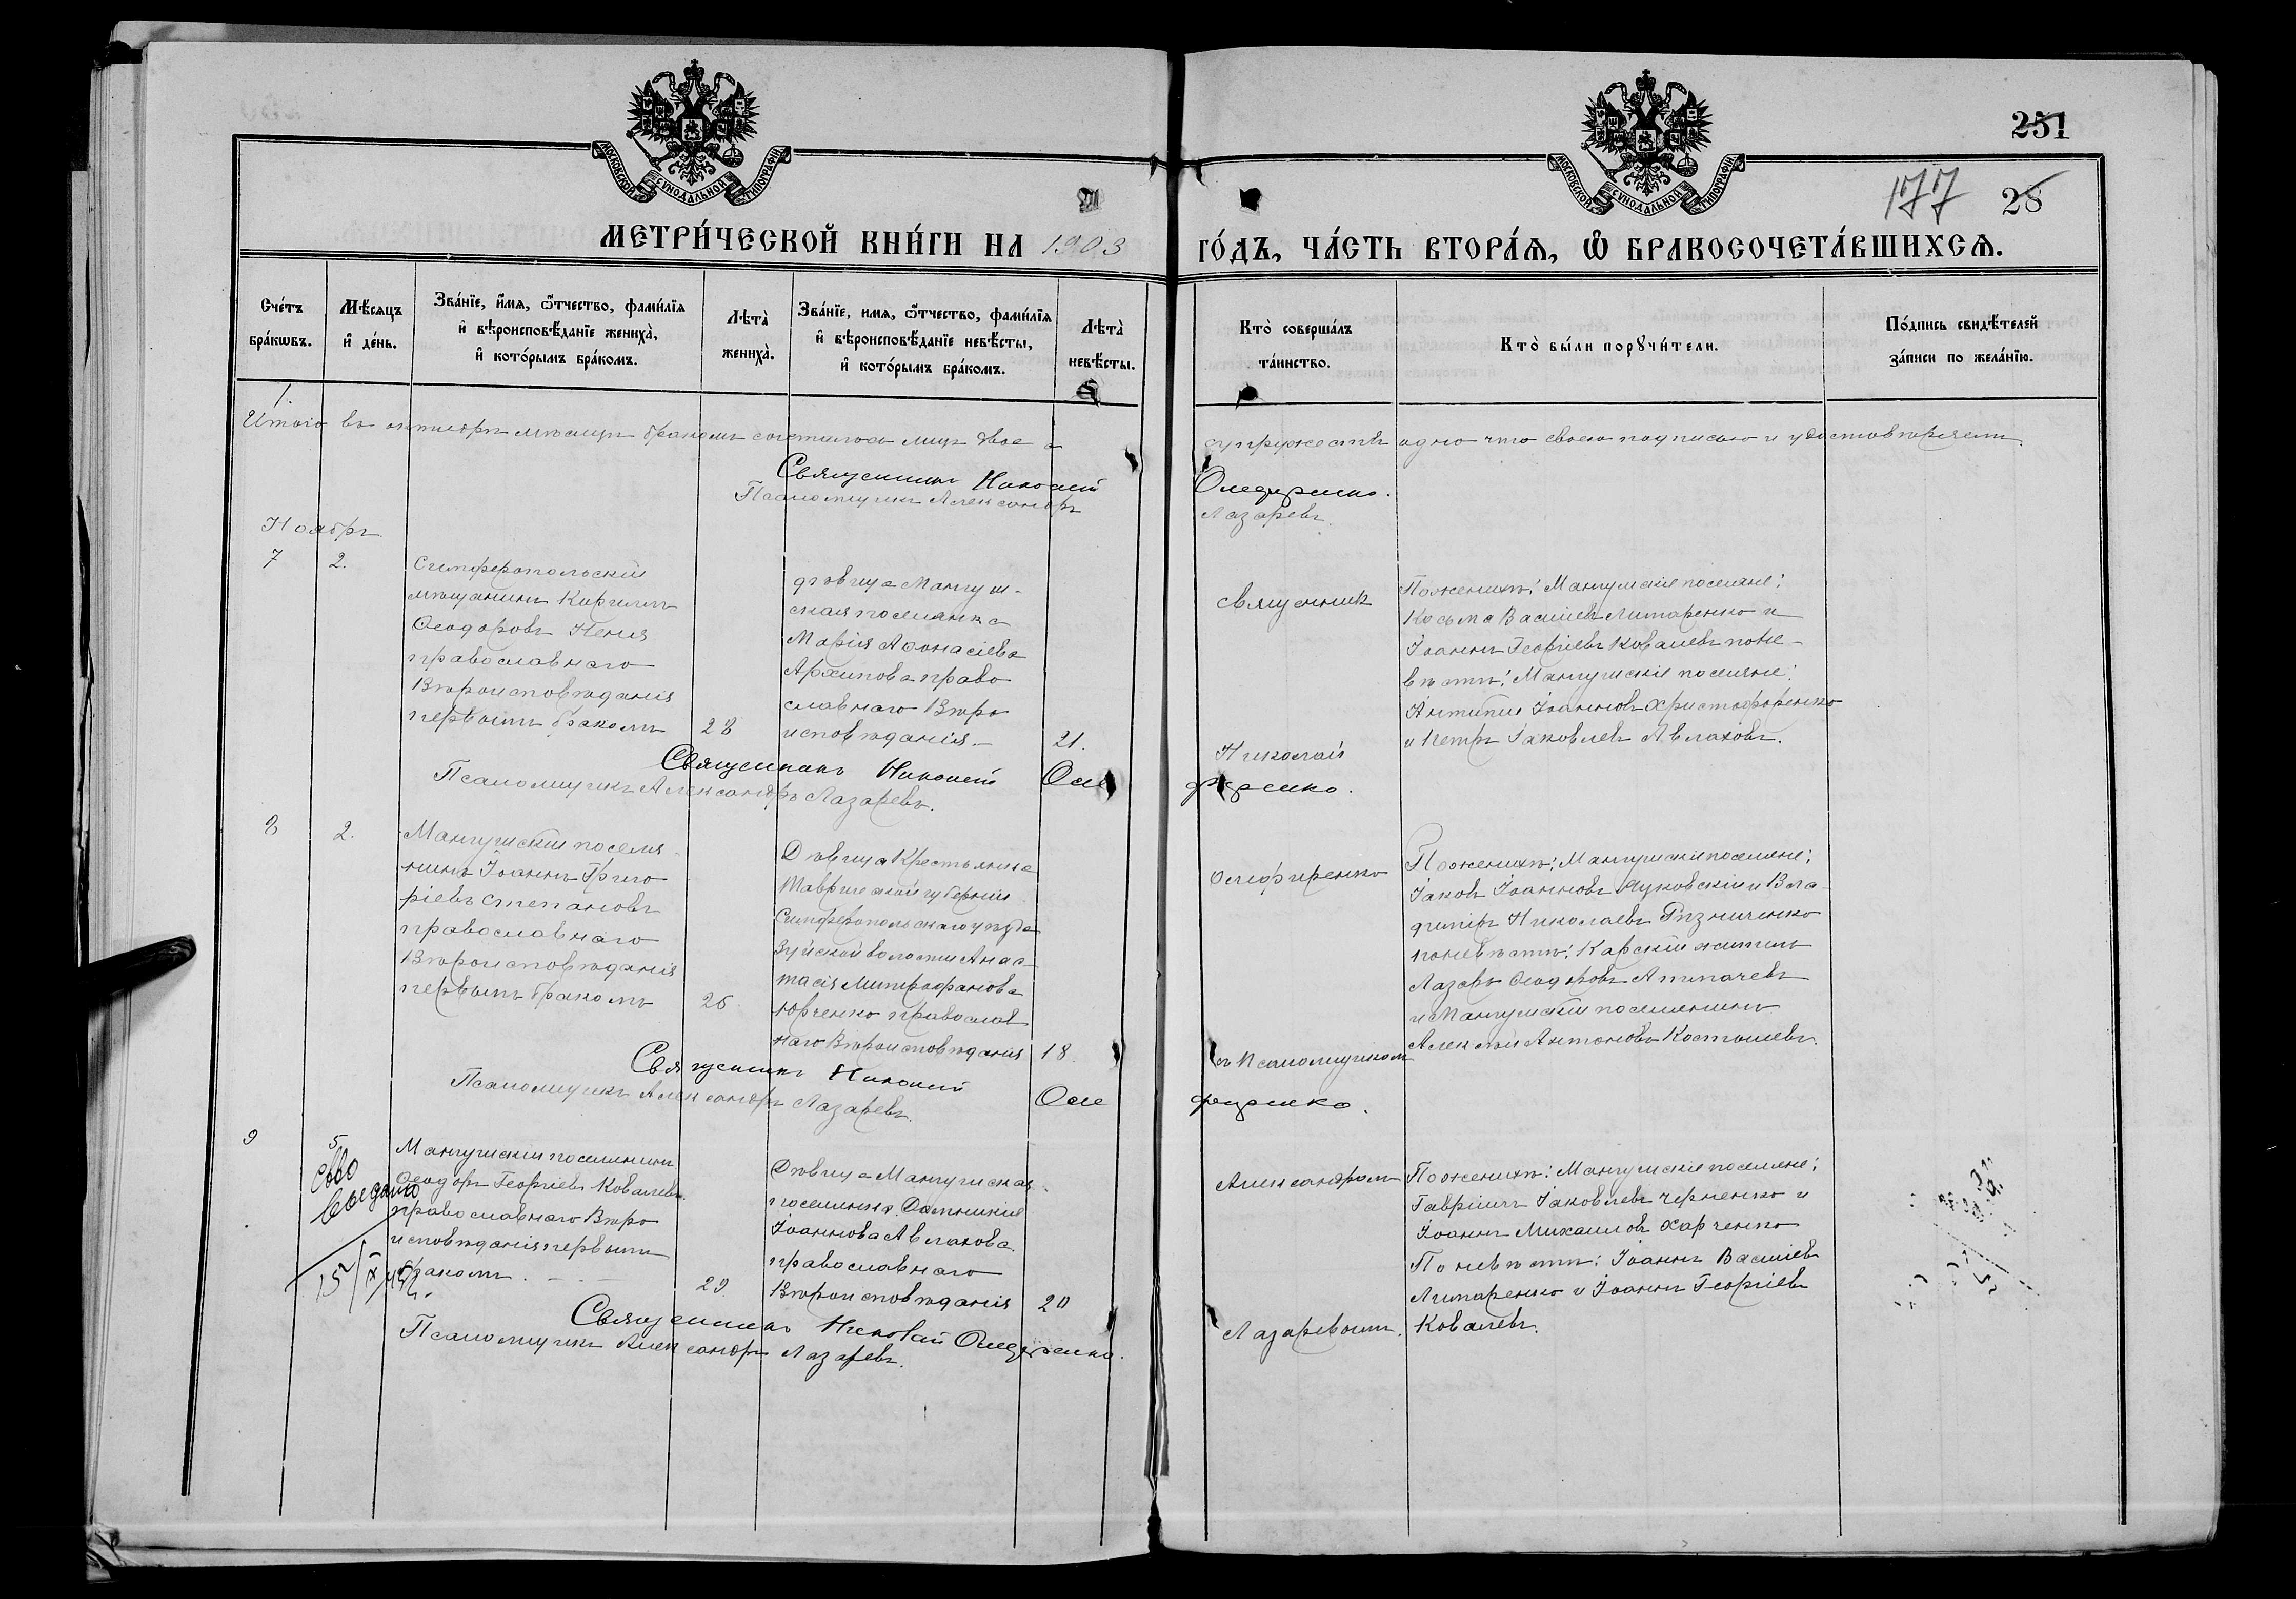 МОСКОВСКОЙ СУНОДАЛЬНОЙ ТИПОГРАФІИ
МОСКОВСКОЙ СУНОДАЛЬНОЙ ТИПОГРАФІИ
251
177 28
МЕТРИ́ЧЕСКОЙ КНИ́ГИ НА 1903
ГО́ДЪ, ЧА́СТЬ ВТОРА́Ѧ, Ѡ҆ БРАКОСОЧЕТА́ВШИХСѦ.
Сче́тъ бра́кѡвъ.
Мѣ́сяцъ и҆ де́нь.
Зва́нїе, и҆́мѧ, ѻ҆́тчество, фами́лїѧ
и҆ вѣроисповѣ́данїе жениха̀,
и҆ кото́рымъ бра́комъ.
Лѣта̀ жениха̀.
Зва́нїе, имѧ, ѻ҆́тчество, фами́лїѧ
и҆ вѣроисповѣ́данїе невѣ́сты,
и҆ кото́рымъ бра́комъ.
Лѣта̀ невѣ́сты.
Кто̀ соверша́лъ
та́инство.
Кто̀ бы́ли порꙋчи́тели.
По́дпись свидѣ́телей
за́писи по жела́нїю.
Итого въ октябрѣ мѣсяцѣ бракомъ сочеталось лицъ двое а
супружествъ одно что своею подписью и удостовѣряемъ.
Священникъ Николай Олефиренко.
Псаломщикъ Александръ Лазаревъ.
Ноябрь
7
2.
Симферопольскій
мѣщанинъ Кириллъ
Ѳеодоровъ Неня
православнаго
Вѣроисповѣданія
первымъ бракомъ
28
дѣвица Мангуш-
ская поселянка
Марія Аѳонасіева
Архипова право
славнаго Вѣро
исповѣданія.
21.
священник
Николай
По женихѣ: Мангушскіе поселяне:
Косьма Васіліевъ Литаренко и
Іоаннъ Георгіевъ Ковалевъ по не-
вѣстѣ: Мангушскіе поселяне:
Антипій Іоанновъ Христофоренко
и Петръ Іаковлевъ Авлаховъ.
Священникъ Николай Олефиренко.
Псаломщикъ Александръ Лазаревъ.
8
2.
Мангушскій поселя
нинъ Іоаннъ Григо
ріевъ Степановъ
православнаго
Вѣроисповѣданія
первымъ бракомъ
Дѣвица Крестьянка
Таврической губерніи
Симферопольскаго уѣзда
Зуйской волости Анас-
тасія Митрофанова
Юрченко православ
наго Вѣроисповѣданія
18.
Олефиренко
съ Псаломщикомъ
По женихѣ: Мангушскіе поселяне:
Іаковъ Іоанновъ Чуковскій и Вла-
диміръ Николаевъ Рѣзниченко
по невѣстѣ: Карскій житель
Лазарь Ѳеодоровъ
и Мангушскій поселянинъ
Алексѣй Антоновъ Костюшевъ.
Священникъ Николай Олефиренко.
Псаломщикъ Александръ Лазаревъ.
9
5
Мангушскій поселянинъ
Ѳеодоръ Георгіевъ Ковалевъ
православнаго Вѣро
исповѣданія первымъ
бракомъ.
29.
Дѣвица Мангушская
поселянка Домникія
Іоаннова Авлахова
православнаго
Вѣроисповѣданія
20
Александромъ
Лазаревымъ.
По женихѣ: Мангушскіе поселяне:
Гавріилъ Іаковлевъ Черненко и
Іоаннъ Михаиловъ Харченко
По невѣстѣ: Іоаннъ Васіліевъ
Литаренко и Іоаннъ Георгіевъ
Ковалевъ.
Священникъ Николай Олефиренко.
Псаломщикъ Александръ Лазаревъ.